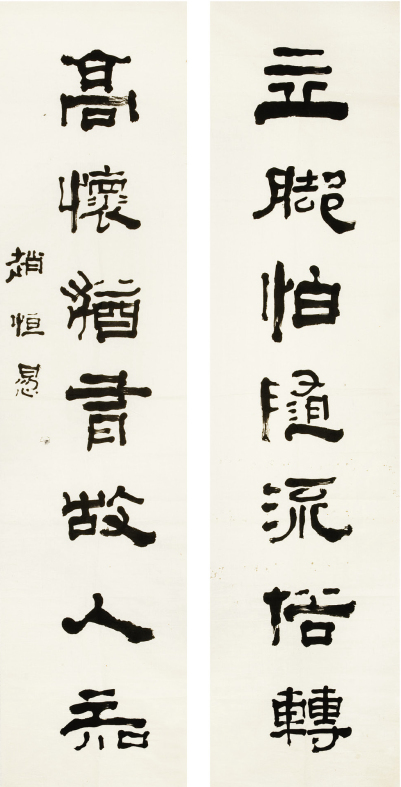 立脚怕隨流俗轉
高懷猶書故人知
趙恒惖